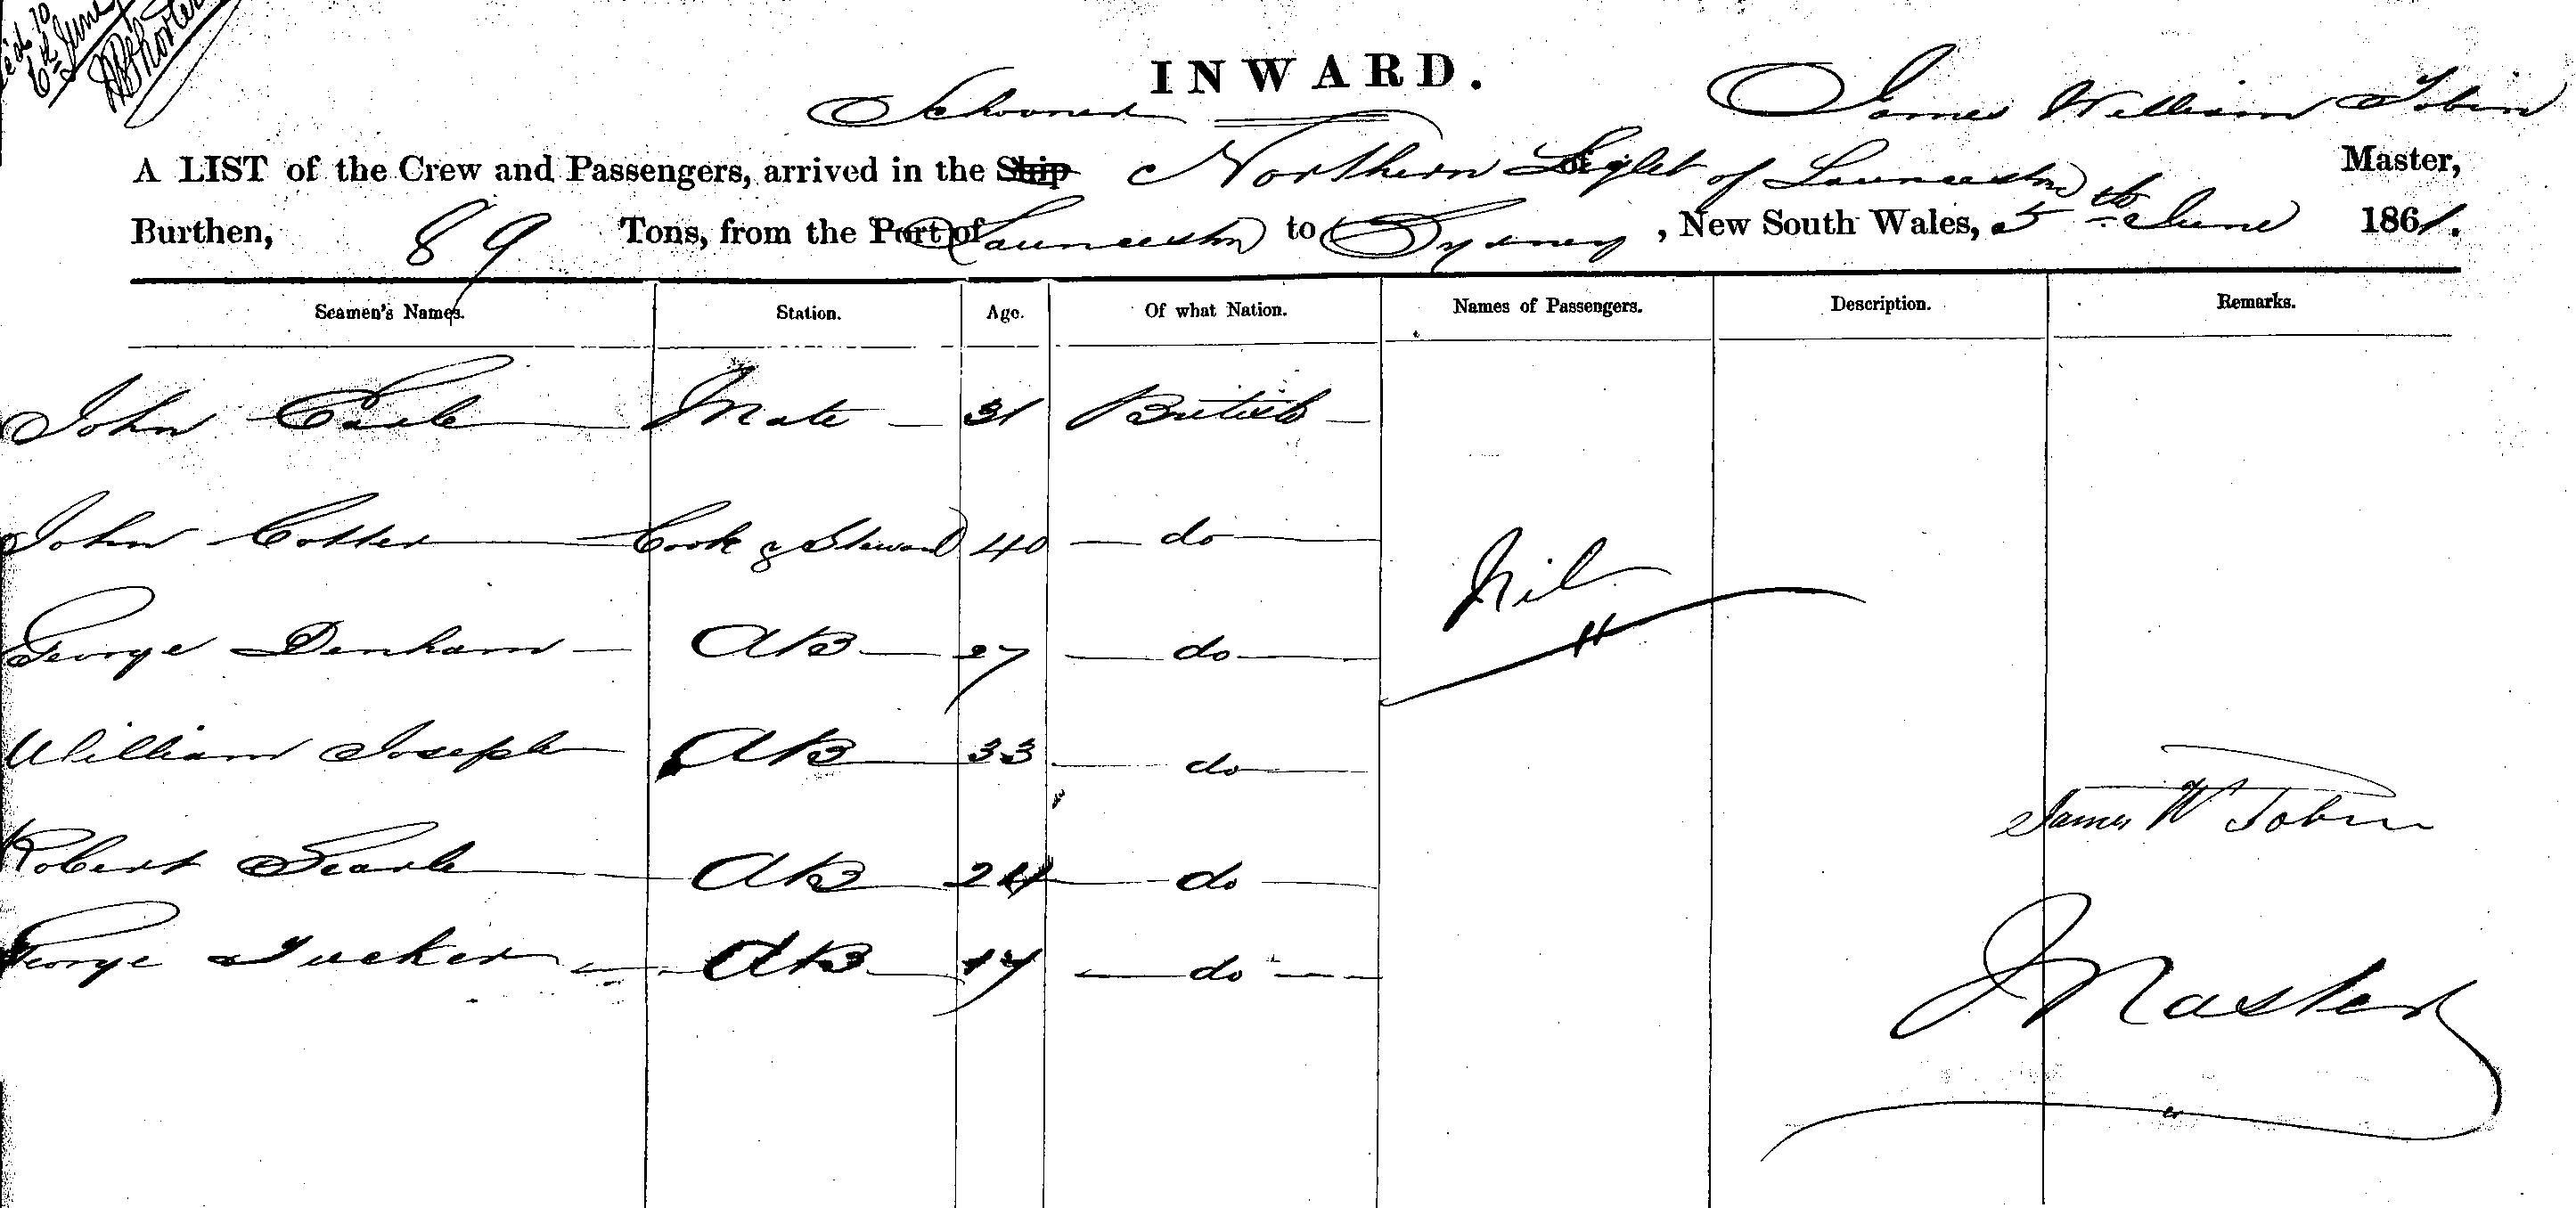 6th June
INWARD.
Schooner James William Tobin
A LIST of the Crew and Passengers, arrived in the Ship Northern Light of Launceston Master,
Burthen, 89 Tons, from the Port of Launceston to Sydney, New South Wales, 5th June 1861.
Seamen's Names. Station. Age. Of what Nation. Names of Passengers. Description. Remarks.
John Mate 31 British
John Cotter Cook & Steward 40 do
Nil
George Denham AB 27 do
William Joseph AB 33 do
James W Tobin
Robert Searle AB 24 do
George Tucker AB 17 do
Master